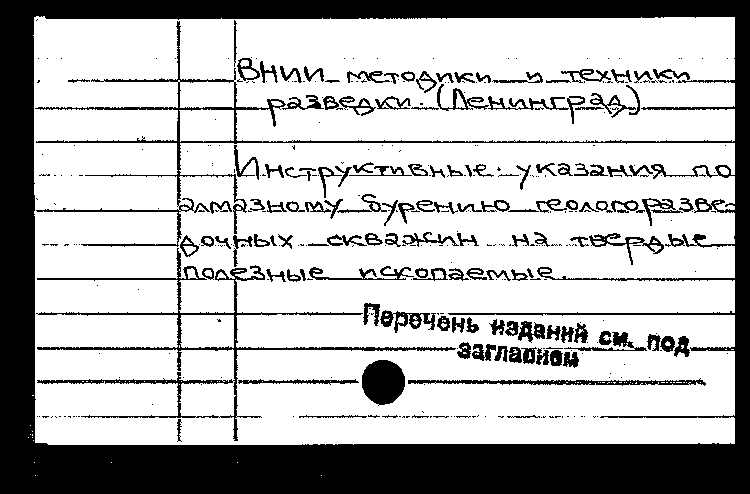 ВНИИ методики и техники
разведки. (Ленинград)
Инструктивные указания по
алмазному бурению геологоразве-
дочных скважин на твердые
полезные ископаемые.
Перечень изданий см. под
заглавием